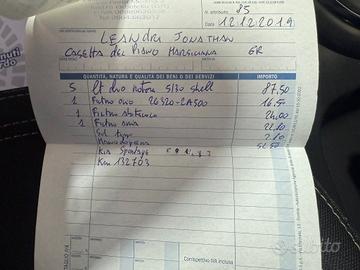 N. attribuito 85
Data 12.12.2019
LEANDRI JONATHAN
CASETTA del PIANO MARSILIANA GR
QUANTITÀ, NATURA E QUALITÀ DEI BENI O DEI SERVIZI IMPORTO
5 lt olio motore 5/30 shell 87,50
1 Filtro olio 26320-2A500 16,50
1 Filtro abitacolo 24,00
1 Filtro aria 22,10
Sol tappo 2,10
Manodopera
Kia Sportage
Km 132703
Corrispettivo IVA inclusa
subito